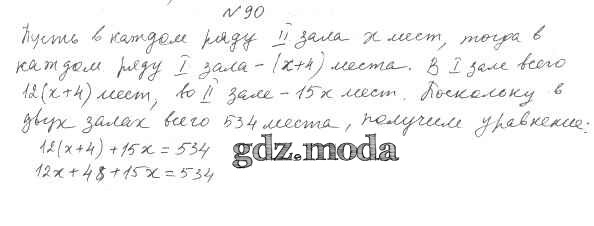 №90
Пусть в каждом ряду II зала x мест, тогда в
каждом ряду I зала - (x+4) места. В I зале всего
12(x+4) мест, во II зале - 15x мест. Поскольку в
двух залах всего 534 места, получим уравнение:
12(x+4)+15x = 534
gdz.moda
12x+48+15x = 534